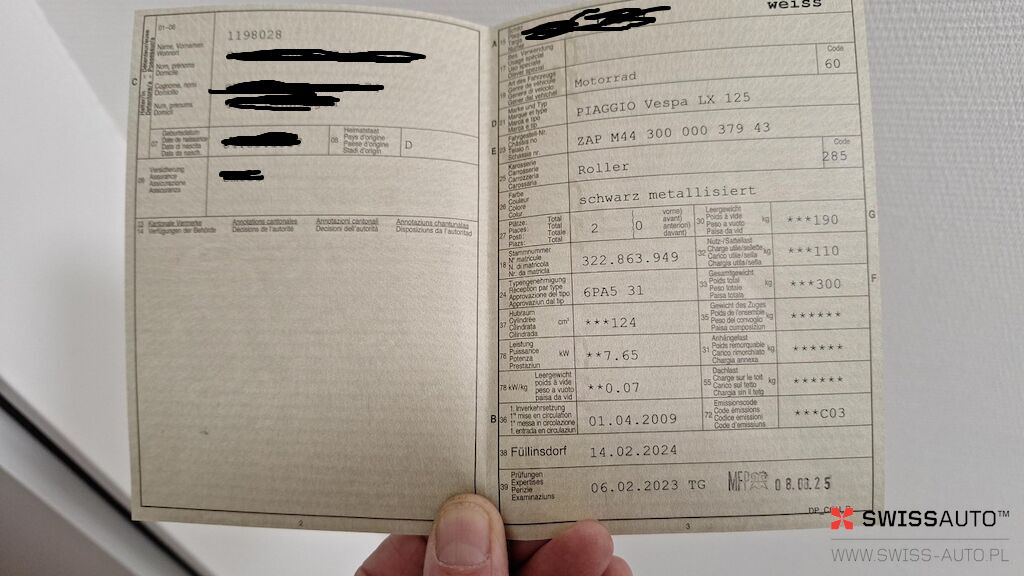 01-06
1198028
Name, Vornamen
Wohnort
Nom, prénoms
Domicile
Cognome, nomi
Domicilio
Num, prenums
Domicil
C
07
Geburtsdatum
Date de naissance
Data di nascita
Data da nasch.
08
Heimatstaat
Pays d'origine
Paese d'origine
Stadi d'origin
D
09
Versicherung
Assurance
Assicurazione
Assicuranza
13 Kantonale Vermerke
14 Verfügungen der Behörde
Annotations cantonales
Décisions de l'autorité
Annotazioni cantonali
Decisioni dell'autorità
Annotaziuns chantunalas
Disposiziuns da l'autoritad
2
A
15
weiss
17
Bes. Verwendung
Usage spécial
Uso speciale
Diever spezial
Code
60
19
Art des Fahrzeuges
Genre de véhicule
Genere di veicolo
Gener dal vehichel
Motorrad
D
21
Marke und Typ
Marque et type
Marca e tipo
Marca e tip
PIAGGIO Vespa LX 125
E
23
Fahrgestell-Nr.
Châssis no
Telaio n
Schassis nr.
ZAP M44 300 000 379 43
25
Karosserie
Carrosserie
Carrozzeria
Carossaria
Roller
Code
285
26
Farbe
Couleur
Colore
Colur
schwarz metallisiert
27
Plätze: Total
Places: Total
Posti: Totale
Plazs: Total
2
(0
vorne)
avant)
anteriori)
davant)
30
Leergewicht
Poids à vide
Peso a vuoto
Paisa da vid
kg
***190
G
18
Stammnummer
N° matricule
N. di matricola
Nr. da matricla
322.863.949
32
Nutz-/Sattellast
Charge utile/sellette
Carico utile/sella
Chargia utila/sella
kg
***110
24
Typengenehmigung
Réception par type
Approvazione del tipo
Approvaziun dal tip
6PA5 31
33
Gesamtgewicht
Poids total
Peso totale
Paisa totala
kg
***300
F
37
Hubraum
Cylindrée
Cilindrata
Cilindrada
cm³
***124
35
Gewicht des Zuges
Poids de l'ensemble
Peso del convoglio
Paisa cumposiziun
kg
******
76
Leistung
Puissance
Potenza
Prestaziun
kW
**7.65
31
Anhängelast
Poids remorquable
Carico rimorchiato
Chargia annexa
kg
******
78 kW/kg
Leergewicht
poids à vide
peso a vuoto
paisa da vid
**0.07
55
Dachlast
Charge sur le toit
Carico sul tetto
Chargia sin il tetg
kg
******
B
36
1. Inverkehrsetzung
1re mise en circulation
1a messa in circolazione
1. entrada en circulaziun
01.04.2009
72
Emissionscode
Code émissions
Codice emissioni
Code d'emissiuns
***C03
38
Füllinsdorf
14.02.2024
39
Prüfungen
Expertises
Perizie
Examinaziuns
06.02.2023 TG
MFP
08.08.25
3
SWISSAUTO™
WWW.SWISS-AUTO.PL